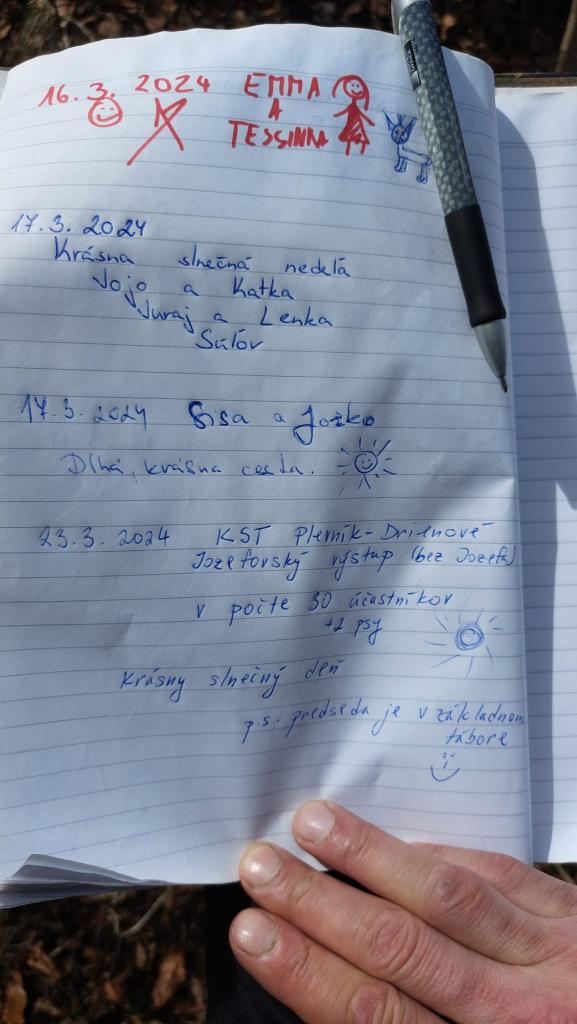 16.3. 2024 EMMA
A
TESSINKA
17.3. 2024
Krásna slnečná nedeľa
Jojo a Katka
Juraj a Lenka
Súľov
17.3. 2024 Sisa a Jožko
Dlhá, krásna cesta.
23.3. 2024 KST Plerník-Drienové
Jozefovský výstup (bez Jozefa)
v počte 30 účastníkov
+2 psy
Krásny slnečný deň
p.s. predseda je v základnom
tábore